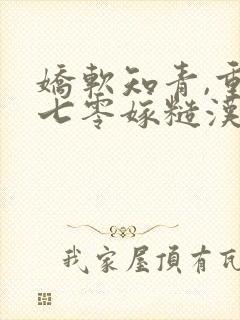 嬌軟知青,重
七零嫁糙漢
我家屋頂有瓦